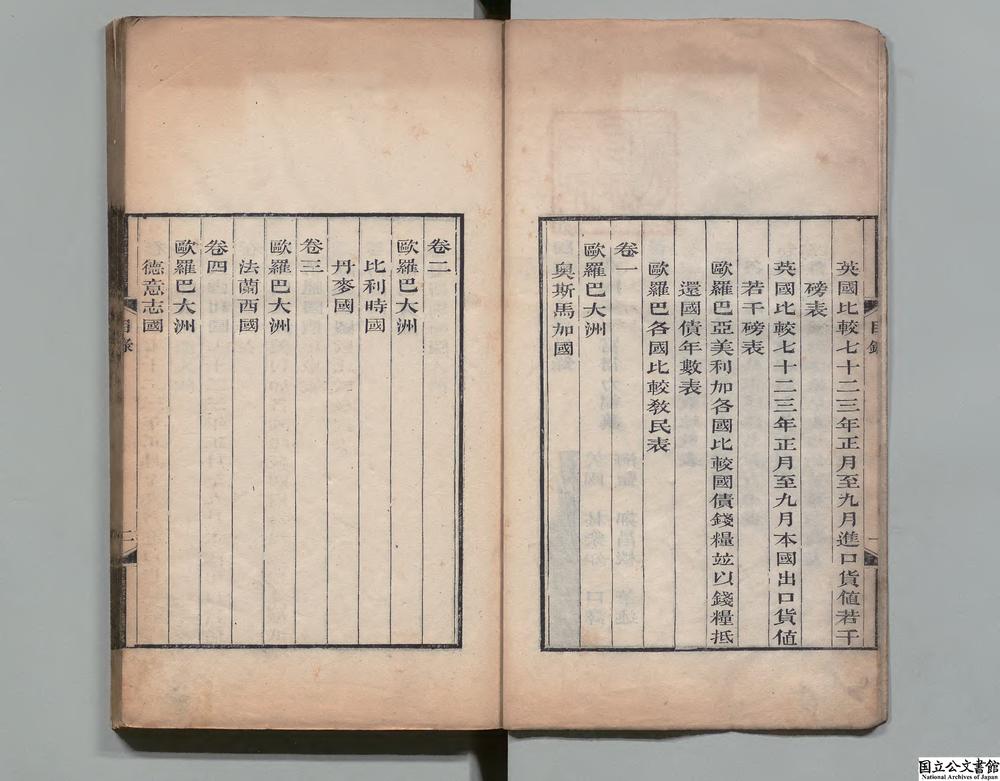 英國比較七十二三年正月至九月進口貨值若干
磅表
英國比較七十二三年正月至九月本國出口貨值
若干磅表
歐羅巴亞美利加各國比較國債錢糧並以錢糧抵
還國債年數表
歐羅巴各國比較教民表
卷一
歐羅巴大洲
奥斯馬加國
卷二
歐羅巴大洲
比利時國
丹麥國
卷三
歐羅巴大洲
法蘭西國
卷四
歐羅巴大洲
德意志國
目錄
二
国立公文書館
National Archives of Japan